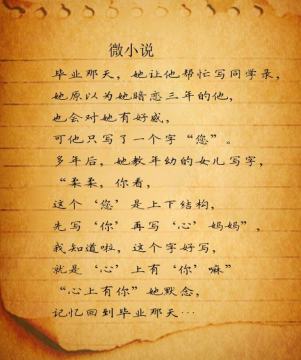 微小说
毕业那天，她让他帮忙写同学录，
她原以为她暗恋三年的他，
也会对她有好感，
可他只写了一个字“您”。
多年后，她教年幼的女儿写字，
“柔柔，你看，
这个‘您’是上下结构，
先写‘你’再写‘心’妈妈”，
我知道啦，这个字好写，
就是‘心’上有‘你’嘛”
“心上有你”她默念，
记忆回到毕业那天…